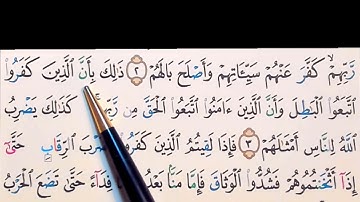 رَّبِّهِمْ ۙ كَفَّرَ عَنْهُمْ سَيِّـَٔاتِهِمْ وَأَصْلَحَ بَالَهُمْ ٢ ذَٰلِكَ بِأَنَّ ٱلَّذِينَ كَفَرُوا۟
ٱتَّبَعُوا۟ ٱلْبَٰطِلَ وَأَنَّ ٱلَّذِينَ ءَامَنُوا۟ ٱتَّبَعُوا۟ ٱلْحَقَّ مِن كَذَٰلِكَ يَضْرِبُ
ٱللَّهُ لِلنَّاسِ أَمْثَٰلَهُمْ ٣ فَإِذَا لَقِيتُمُ ٱلَّذِينَ ٱلرِّقَابِ حَتَّىٰٓ
إِذَآ أَثْخَنتُمُوهُمْ فَشُدُّوا۟ ٱلْوَثَاقَ فَإِمَّا مَنًّۢا فِدَآءً حَتَّىٰ تَضَعَ ٱلْحَرْبُ